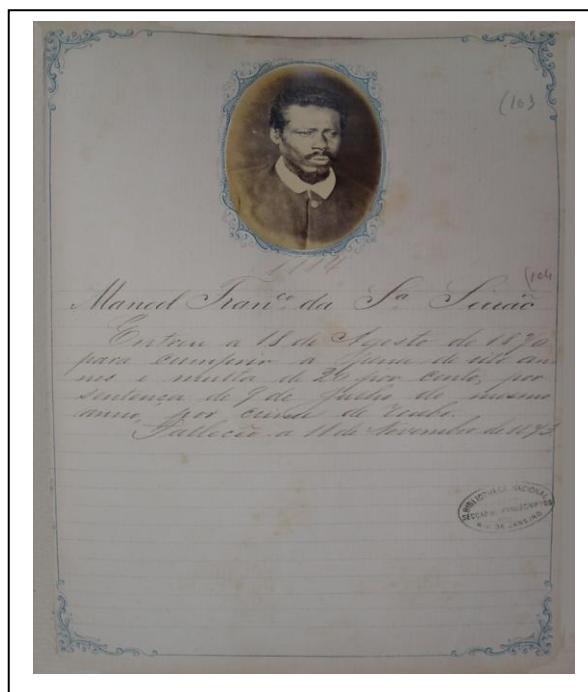 (103
1114
(104
Manoel Franco da Sa Simão
Entrou a 18 de Agosto de 1870
para cumprir a pena de oito an-
nos e multa de 20 por cento, por
sentença de 7 de Julho do mesmo
anno, por crime de roubo.
Falleceo a 11 de Novembro de 1873.
BIBLIOTHECA NACIONAL
SECÇÃO DE MANUSCRIPTOS
RIO DE JANEIRO